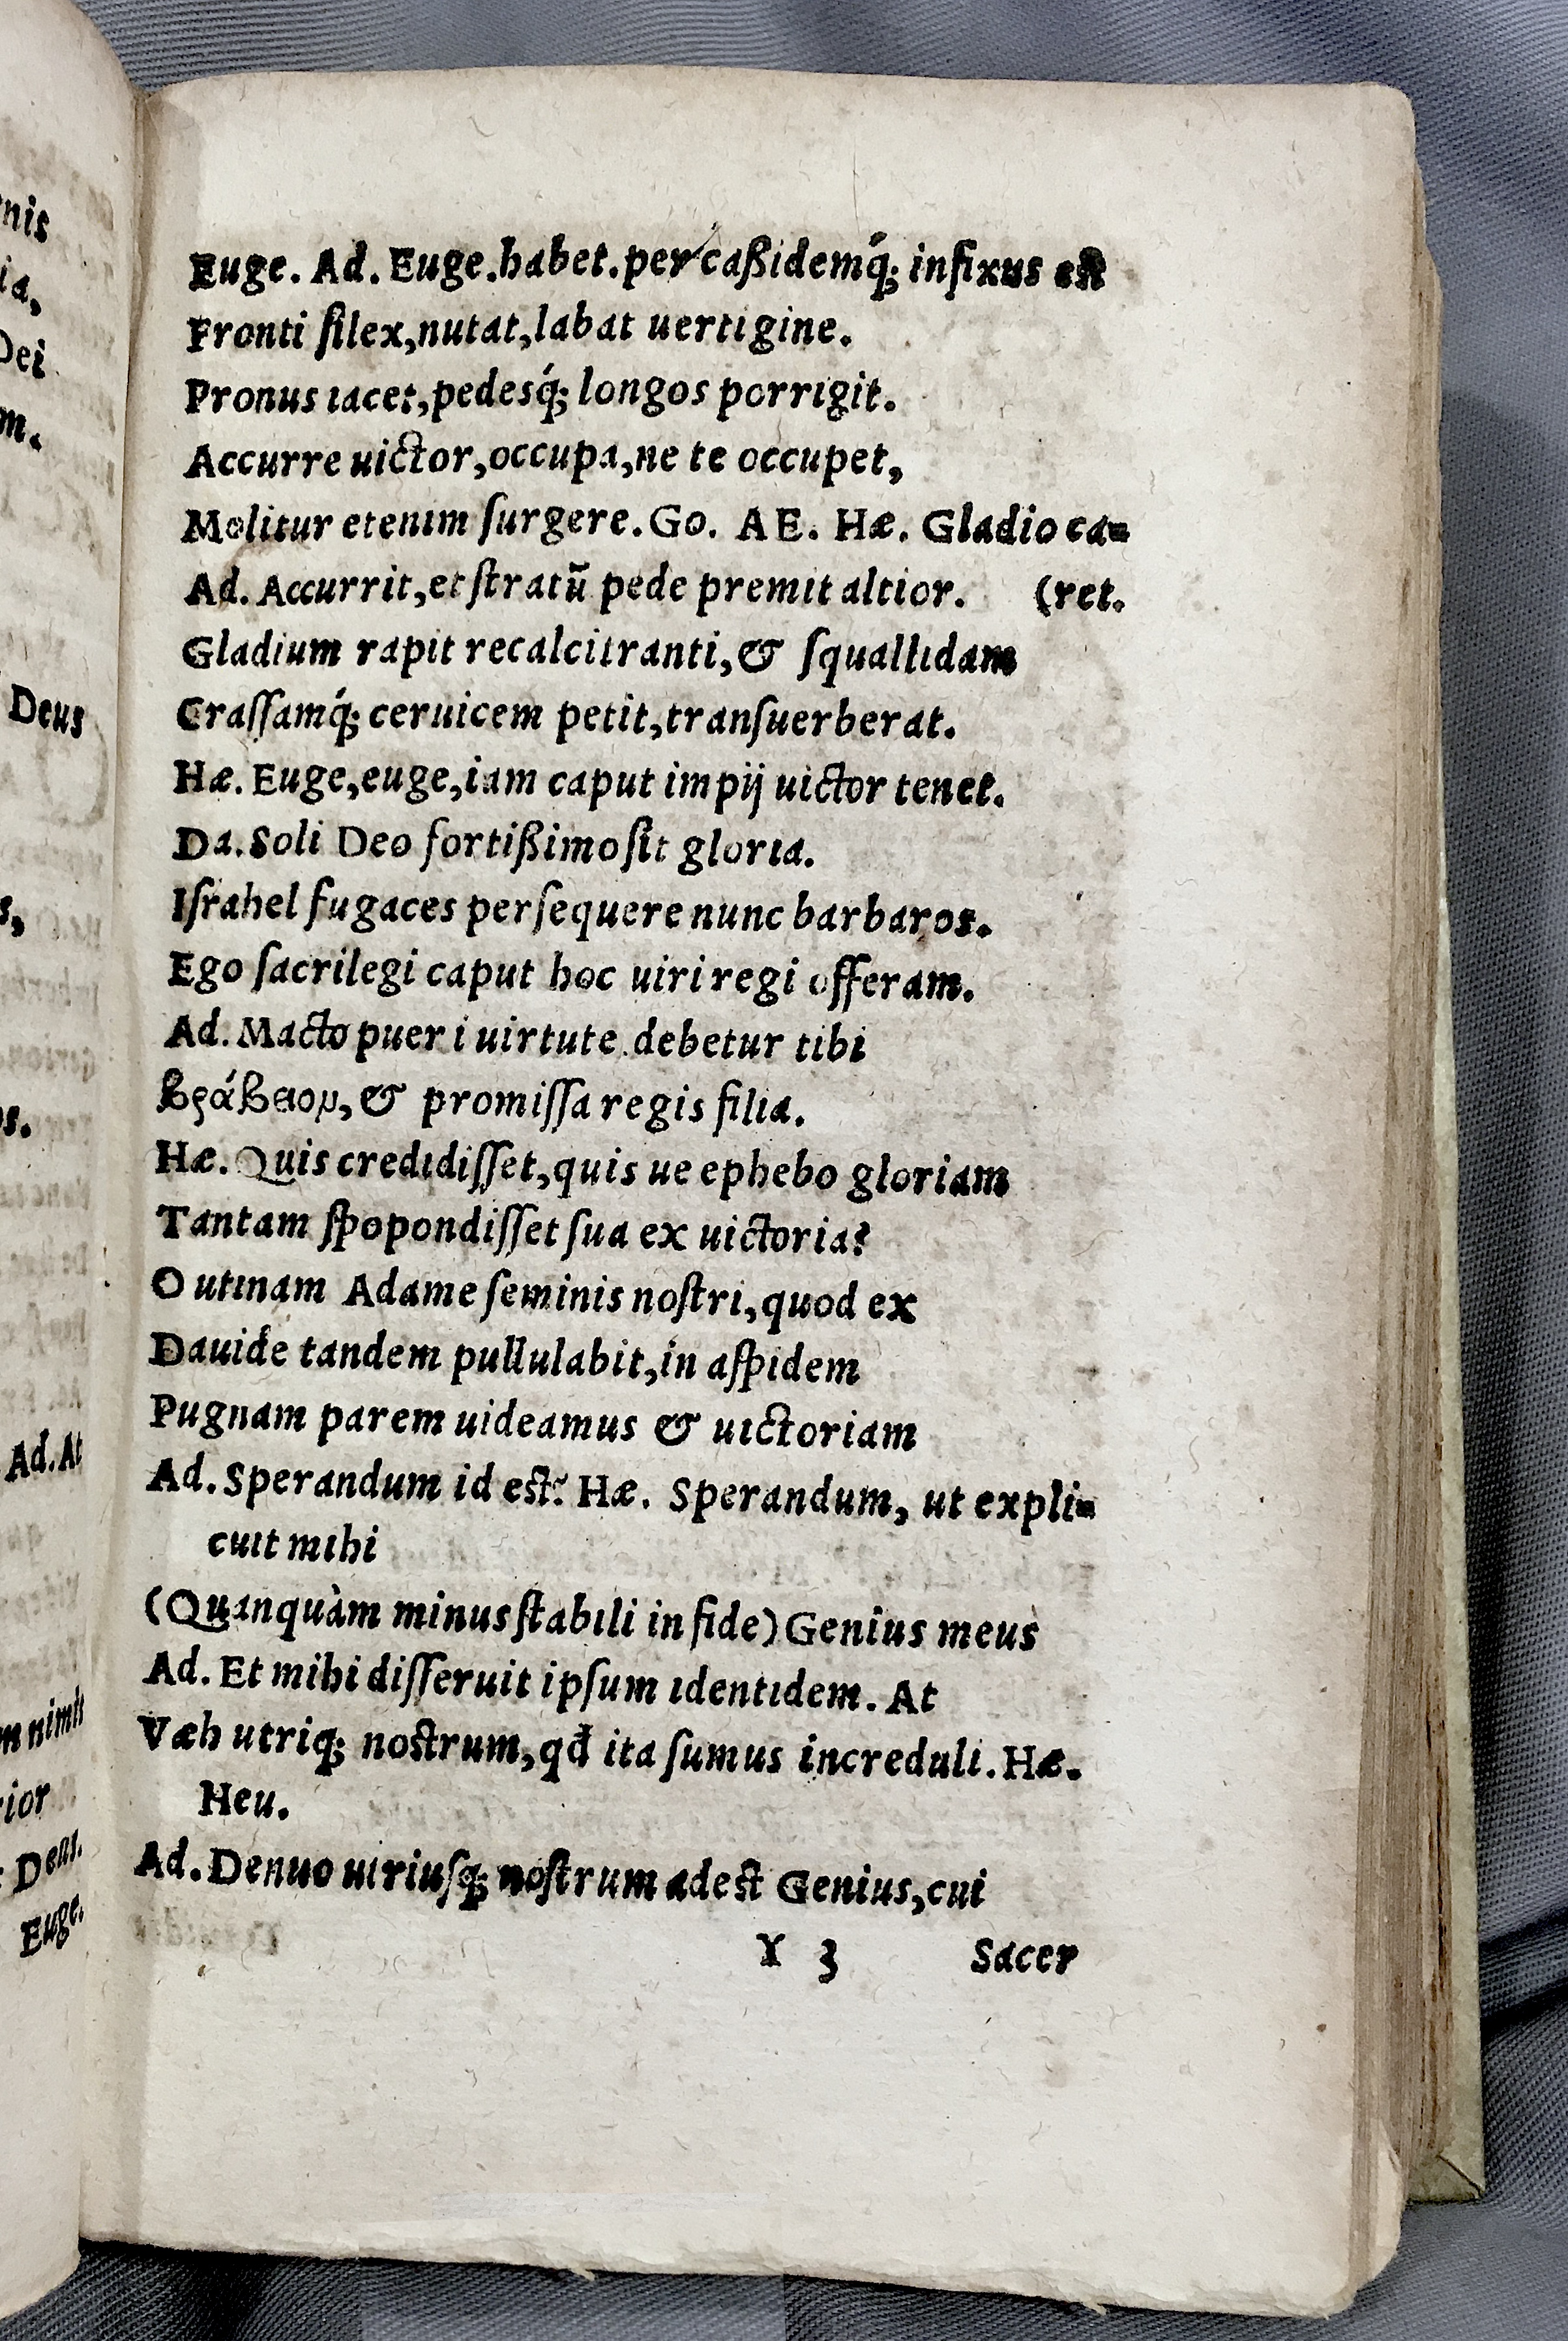 Euge. Ad. Euge.habet.per caßidemq́; infixus est
Fronti ſilex,nutat,labat uertigine.
Pronus iacet,pedesq́; longos porrigit.
Accurre uictor,occupa,ne te occupet,
Molitur etenim ſurgere.Go. AE. Hæ. Gladio ca=
Ad. Accurrit,et ſtratũ pede premit altior. (ret.
Gladium rapit recalcitranti,& ſquallidam
Craſſamq́; ceruicem petit,tranſuerberat.
Hæ. Euge,euge,iam caput impij uictor tenet.
Da.Soli Deo fortißimo ſit gloria.
Iſrahel fugaces perſequere nunc barbaros.
Ego ſacrilegi caput hoc uiri regi offeram.
Ad. Macto puer i uirtute.debetur tibi
βράβειον,& promiſſa regis filia.
Hæ. Quis credidiſſet,quis ue ephebo gloriam
Tantam ſpopondiſſet ſua ex uictoria?
O utinam Adame ſeminis noſtri,quod ex
Dauide tandem pullulabit,in aſpidem
Pugnam parem uideamus & uictoriam
Ad. Sperandum id est? Hæ. Sperandum, ut expli=
cuit mihi
(Quanquàm minus ſtabili in fide)Genius meus
Ad. Et mihi diſſeruit ipſum identidem. At
Væh utriq; nostrum,qđ ita ſumus increduli.Hæ.
Heu.
Ad. Denuo utriuſq; noſtrum adest Genius,cui
Y 3 Sacer
nis
ia,
Dei
m.
Deus
s,
os.
Ad.At
m nimis
rior
Deus.
Euge.